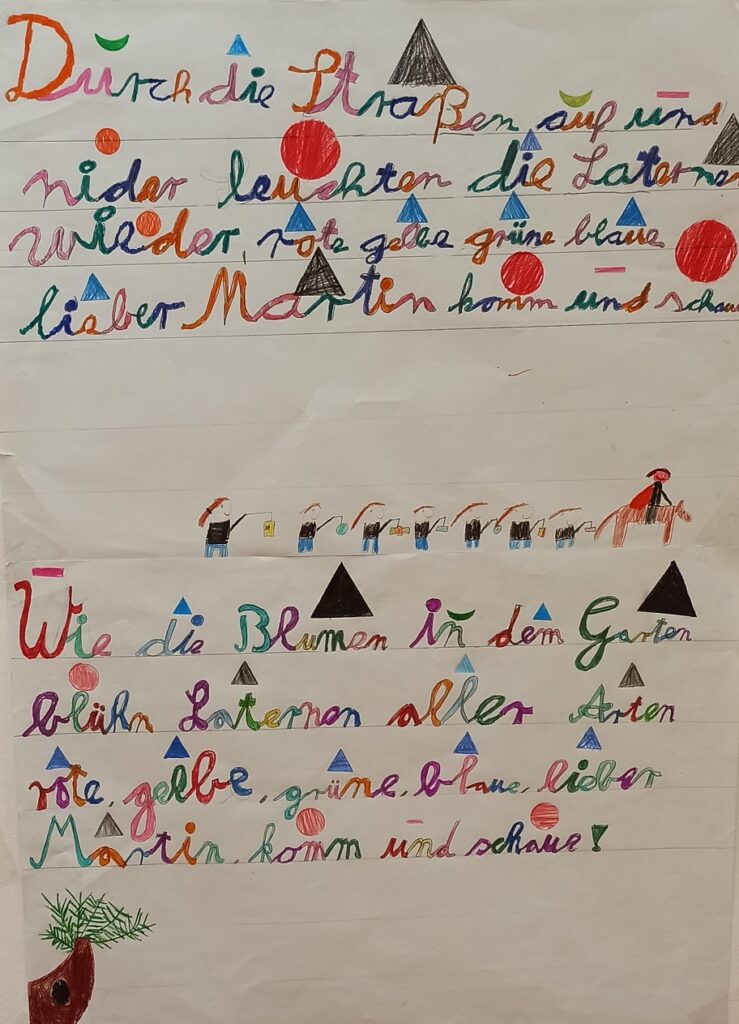 Durch die Straßen auf und
nider leuchten die Laternen
wieder, rote gelbe grüne blaue
lieber Martin komm und schaue
Wie die Blumen in dem Garten
blühn Laternen aller Arten
rote, gelbe, grüne, blaue, lieber
Martin, komm und schaue!